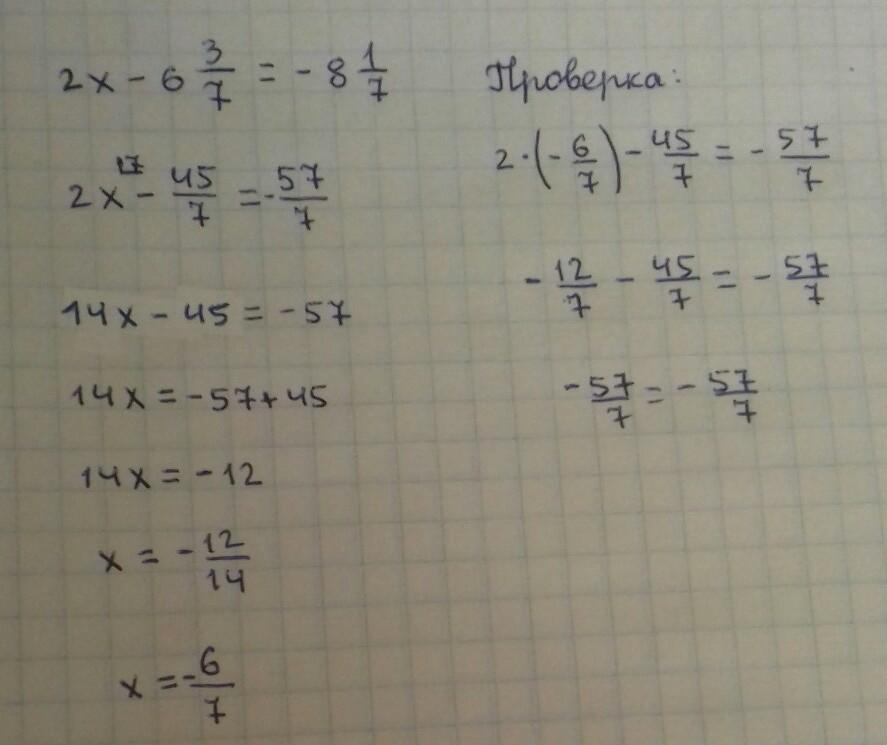 2x - 6 3/7 = - 8 1/7
2x - 45/7 = - 57/7
14x - 45 = -57
14x = -57 + 45
14x = -12
x = - 12/14
x = - 6/7
Проверка:
2 · (- 6/7) - 45/7 = - 57/7
- 12/7 - 45/7 = - 57/7
- 57/7 = - 57/7